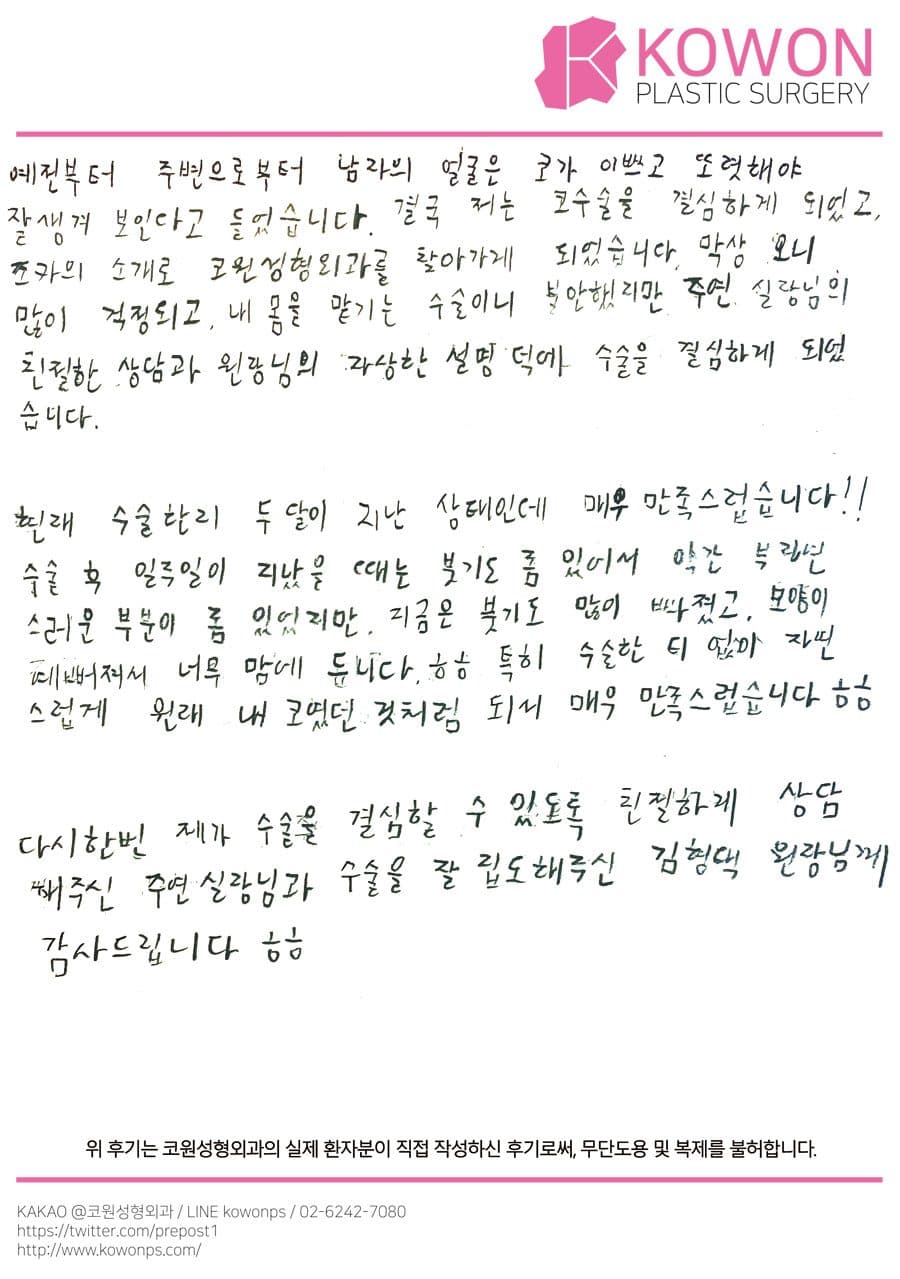 KOWON
PLASTIC SURGERY
예전부터 주변으로부터 남자의 얼굴은 코가 이쁘고 또렷해야
잘생겨 보인다고 들었습니다. 결국 저는 코수술을 결심하게 되었고,
조카의 소개로 코원성형외과를 찾아가게 되었습니다. 막상 오니
많이 걱정되고, 내 몸을 맡기는 수술이니 불안했지만 주연 실장님의
친절한 상담과 원장님의 자상한 설명 덕에 수술을 결심하게 되었
습니다.
현재 수술한지 두 달이 지난 상태인데 매우 만족스럽습니다!!
수술 후 일주일이 지났을 때는 붓기도 좀 있어서 약간 부자연
스러운 부분이 좀 있었지만, 지금은 붓기도 많이 빠졌고, 모양이
예뻐져서 너무 맘에 듭니다. ㅎㅎ 특히 수술한 티 없이 자연
스럽게 원래 내 코였던 것처럼 되서 매우 만족스럽습니다 ㅎㅎ
다시한번 제가 수술을 결심할 수 있도록 친절하게 상담
해주신 주연실장님과 수술을 잘 집도해주신 김형택 원장님께
감사드립니다 ㅎㅎ
위 후기는 코원성형외과의 실제 환자분이 직접 작성하신 후기로써, 무단도용 및 복제를 불허합니다.
KAKAO @코원성형외과 / LINE kowonps / 02-6242-7080
https://twitter.com/prepost1
http://www.kowonps.com/